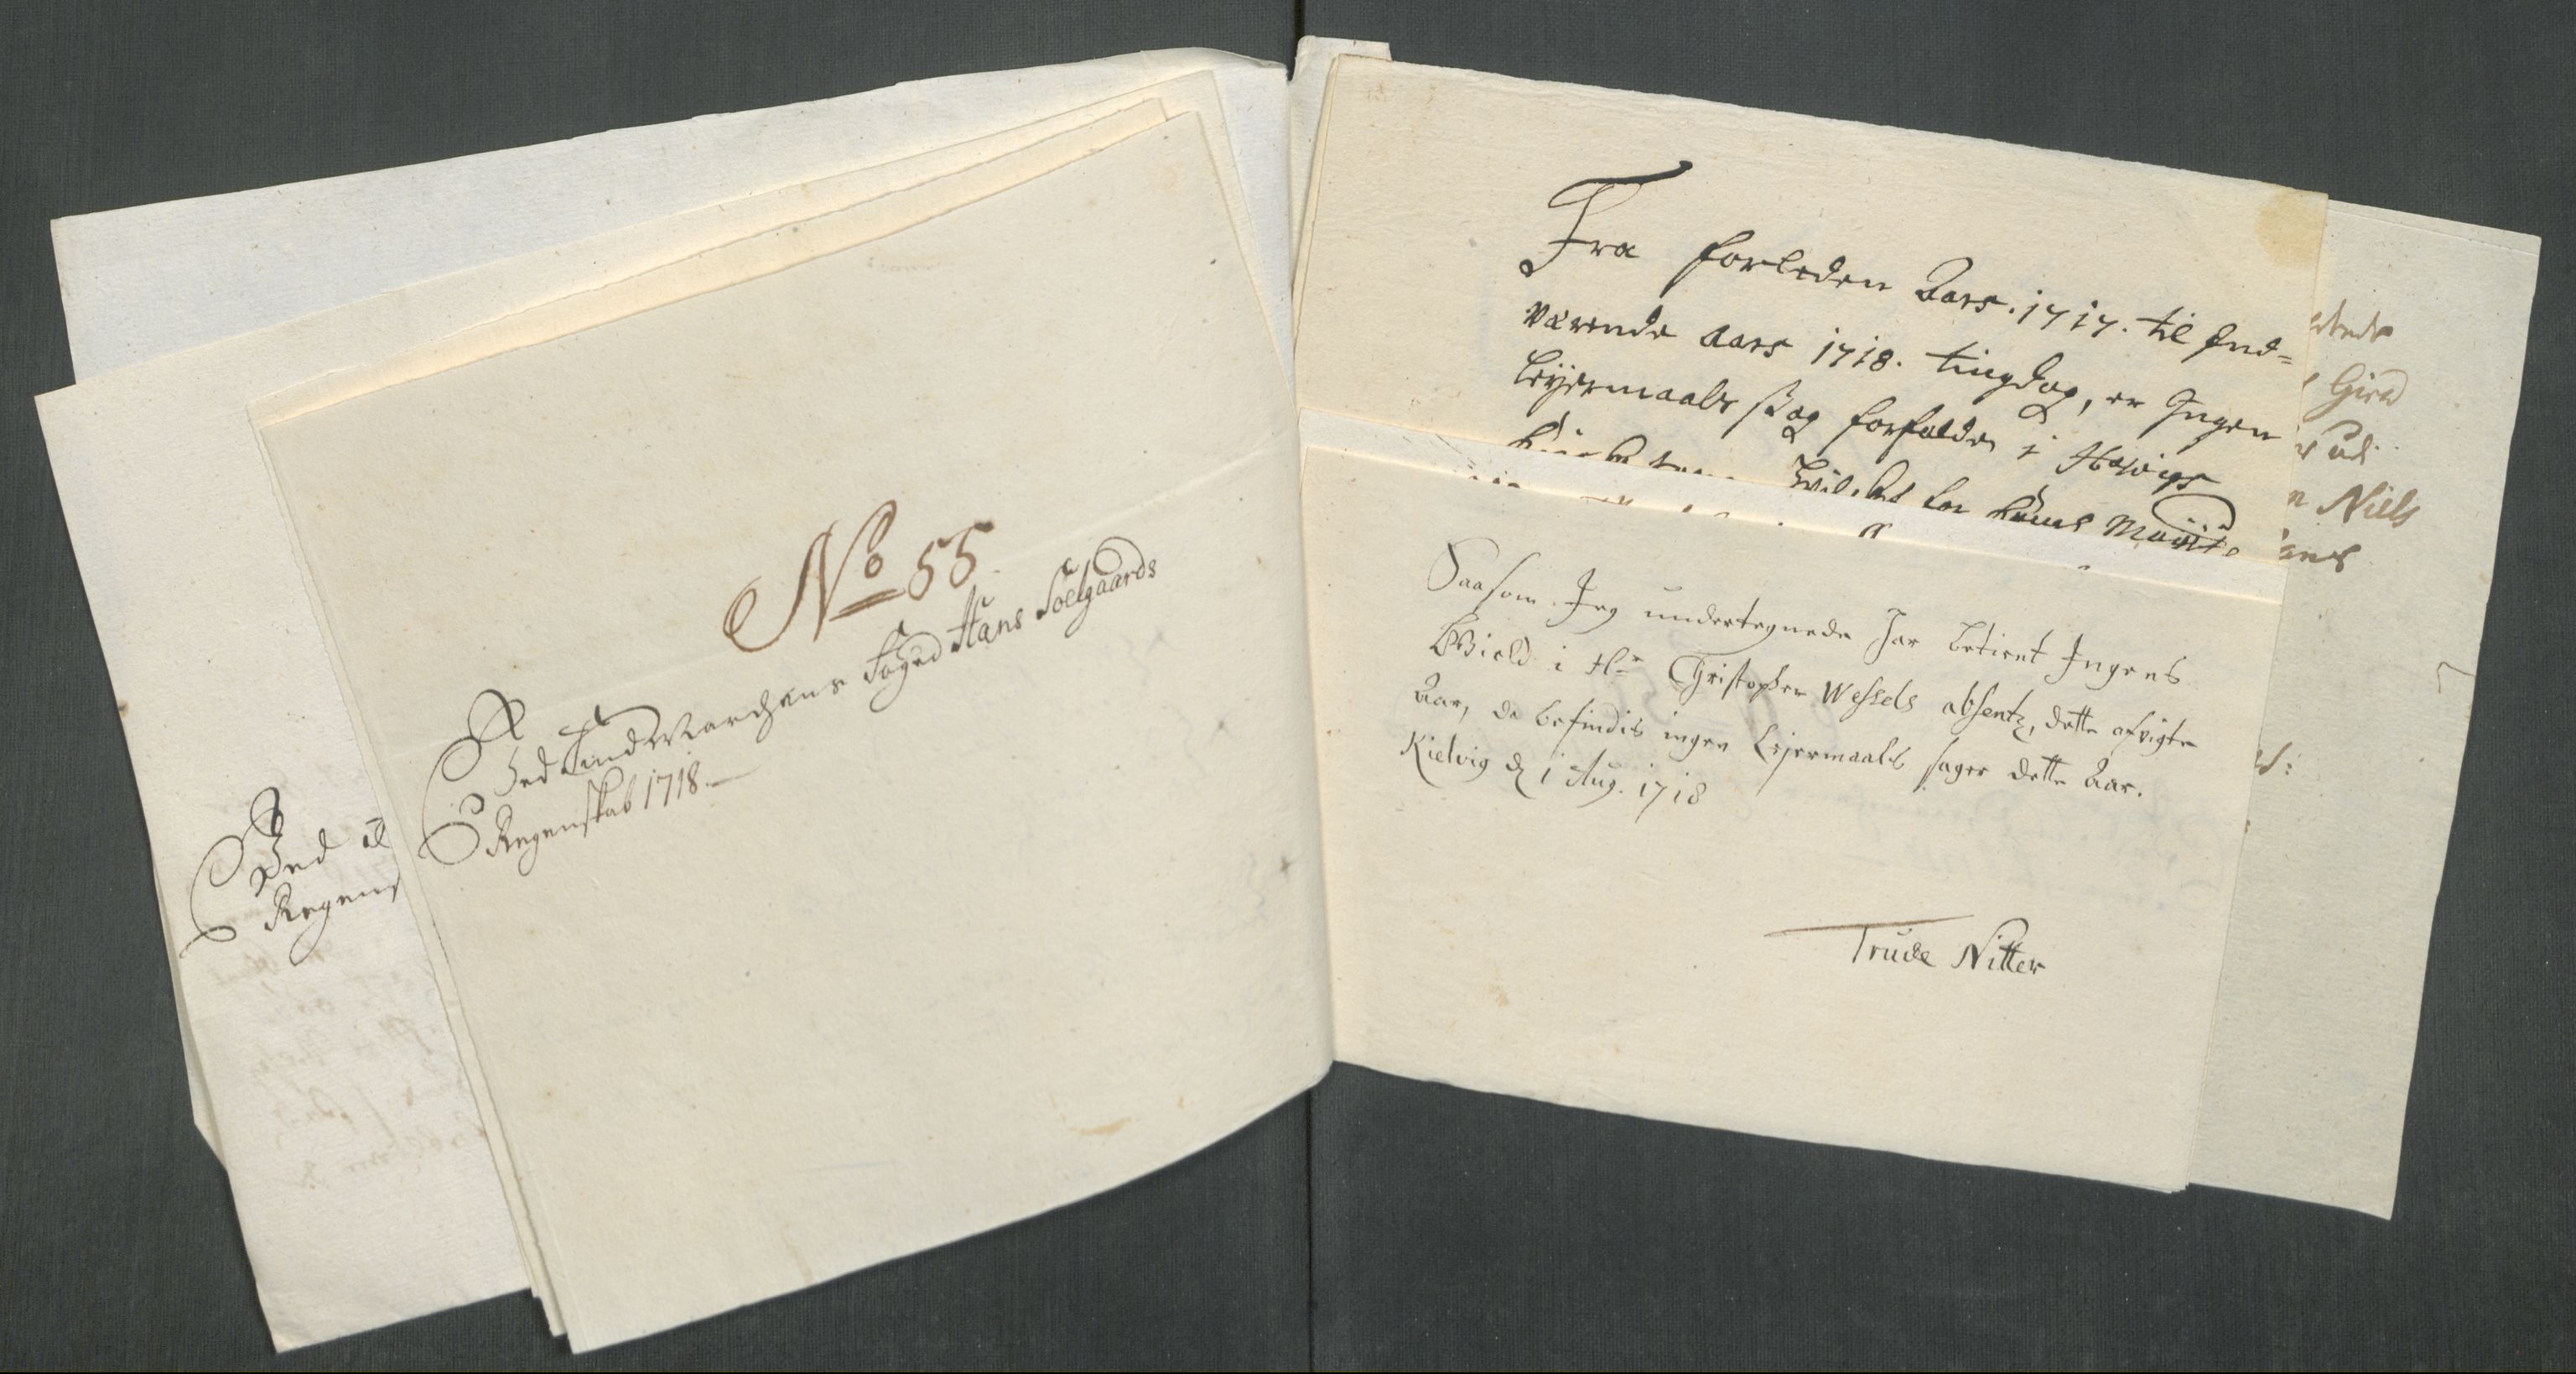 No 55
Ved Findmarchens Foged Hans Soelgaards
Regenskab 1718.
Ved
Regens
Fra forleden Aars. 1717. til Ind=
værende Aars 1718. tingdag, er Ingen
Leyermaals sag forfalden i Hasvigs
Hvilket her
Saasom Jeg undertegnede har betient Ingens
Gield i Hr Christopher Wessels absentz, dette afvigte
Aar, da befindis ingen Leyermaals sager dette Aar.
Kielvig d 1 Aug. 1718
Trude Nitter
Niels